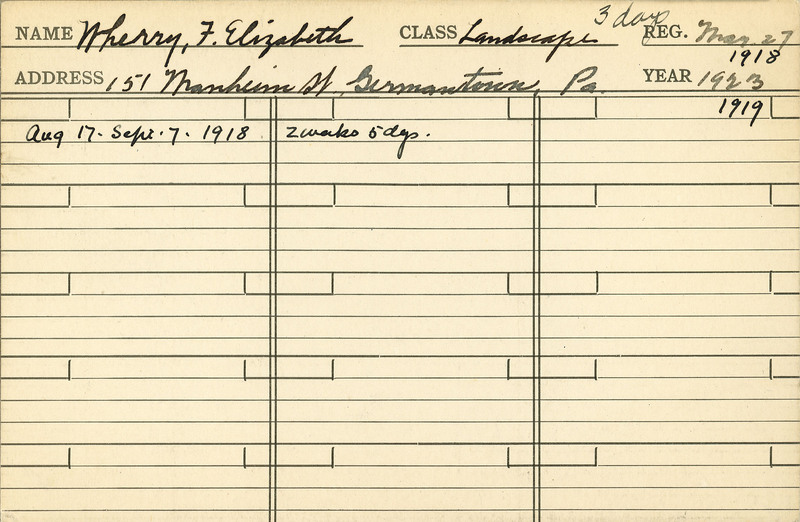 3 days
NAME Wherry, F. Elizabeth CLASS Landscape REG. Mar. 27
1918
ADDRESS 151 Manheim St, Germantown, Pa. YEAR 1923
1919
Aug 17. Sept. 7. 1918 2 weeks 5 dys.